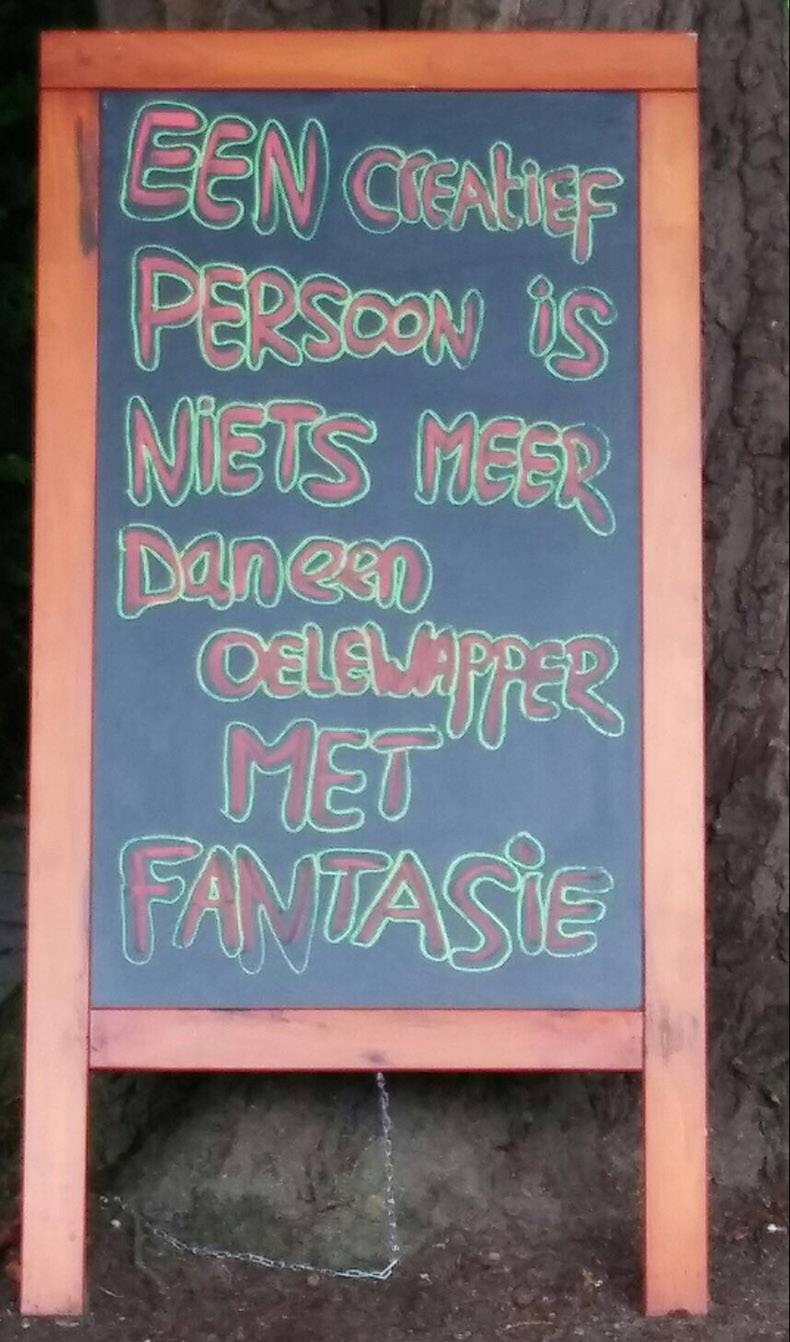 EEN CREAtiEF
PERSOON iS
NiETS MEER
Dan een
OELEWAPPER
MET
FANTASiE